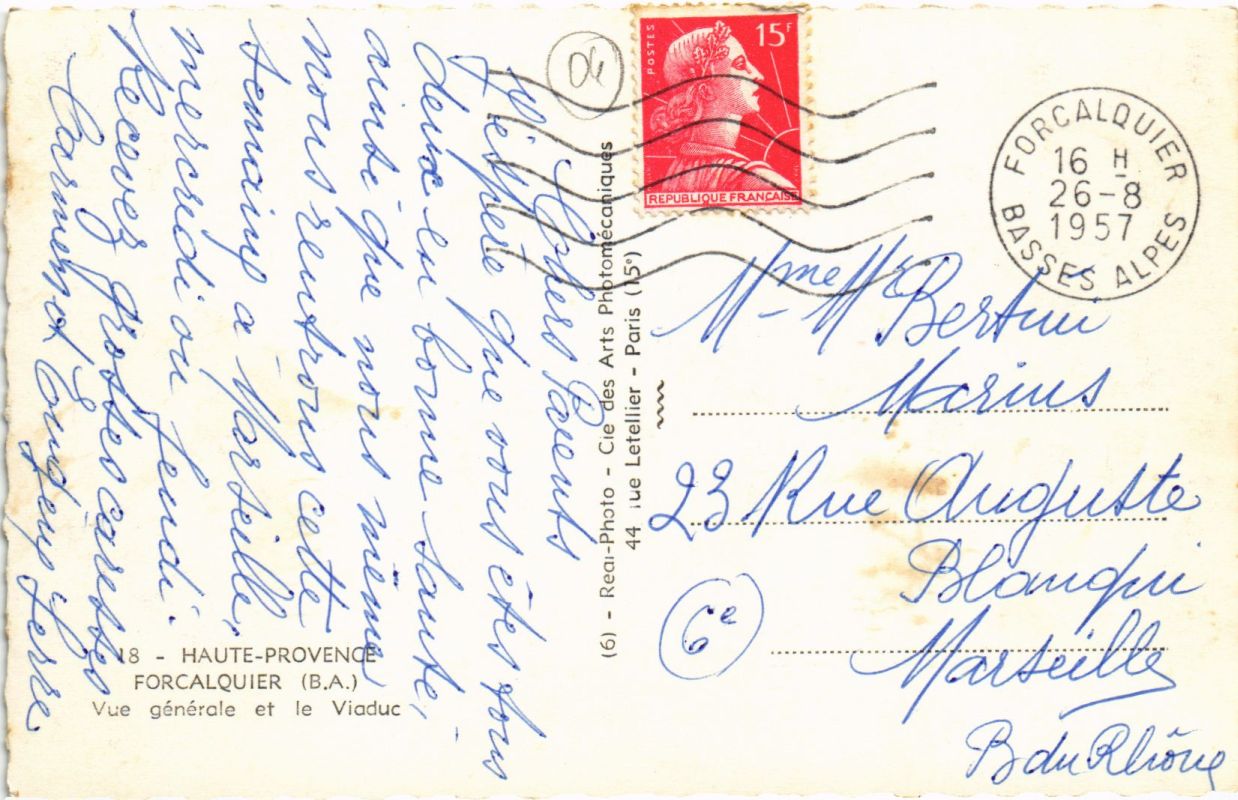 Chers Parents
J'espère que vous êtes tous
deux en bonne santé,
ainsi que nous même,
nous rentrons cette
semaine a Marseille,
mercredi ou Jeudi.
Recevez grosses caresses
Carmen et
Pierre
04
POSTES
15F
REPUBLIQUE FRANÇAISE
FORCALQUIER
16 H
26-8
1957
BASSES ALPES
Mme Mr Bertini
Marius
23 Rue Auguste
Blanqui
Marseille
6e
B du Rhône
(6) - Real-Photo - Cie des Arts Photomécaniques
44 rue Letellier - Paris (15e)
18 - HAUTE-PROVENCE
FORCALQUIER (B.A.)
Vue générale et le Viaduc